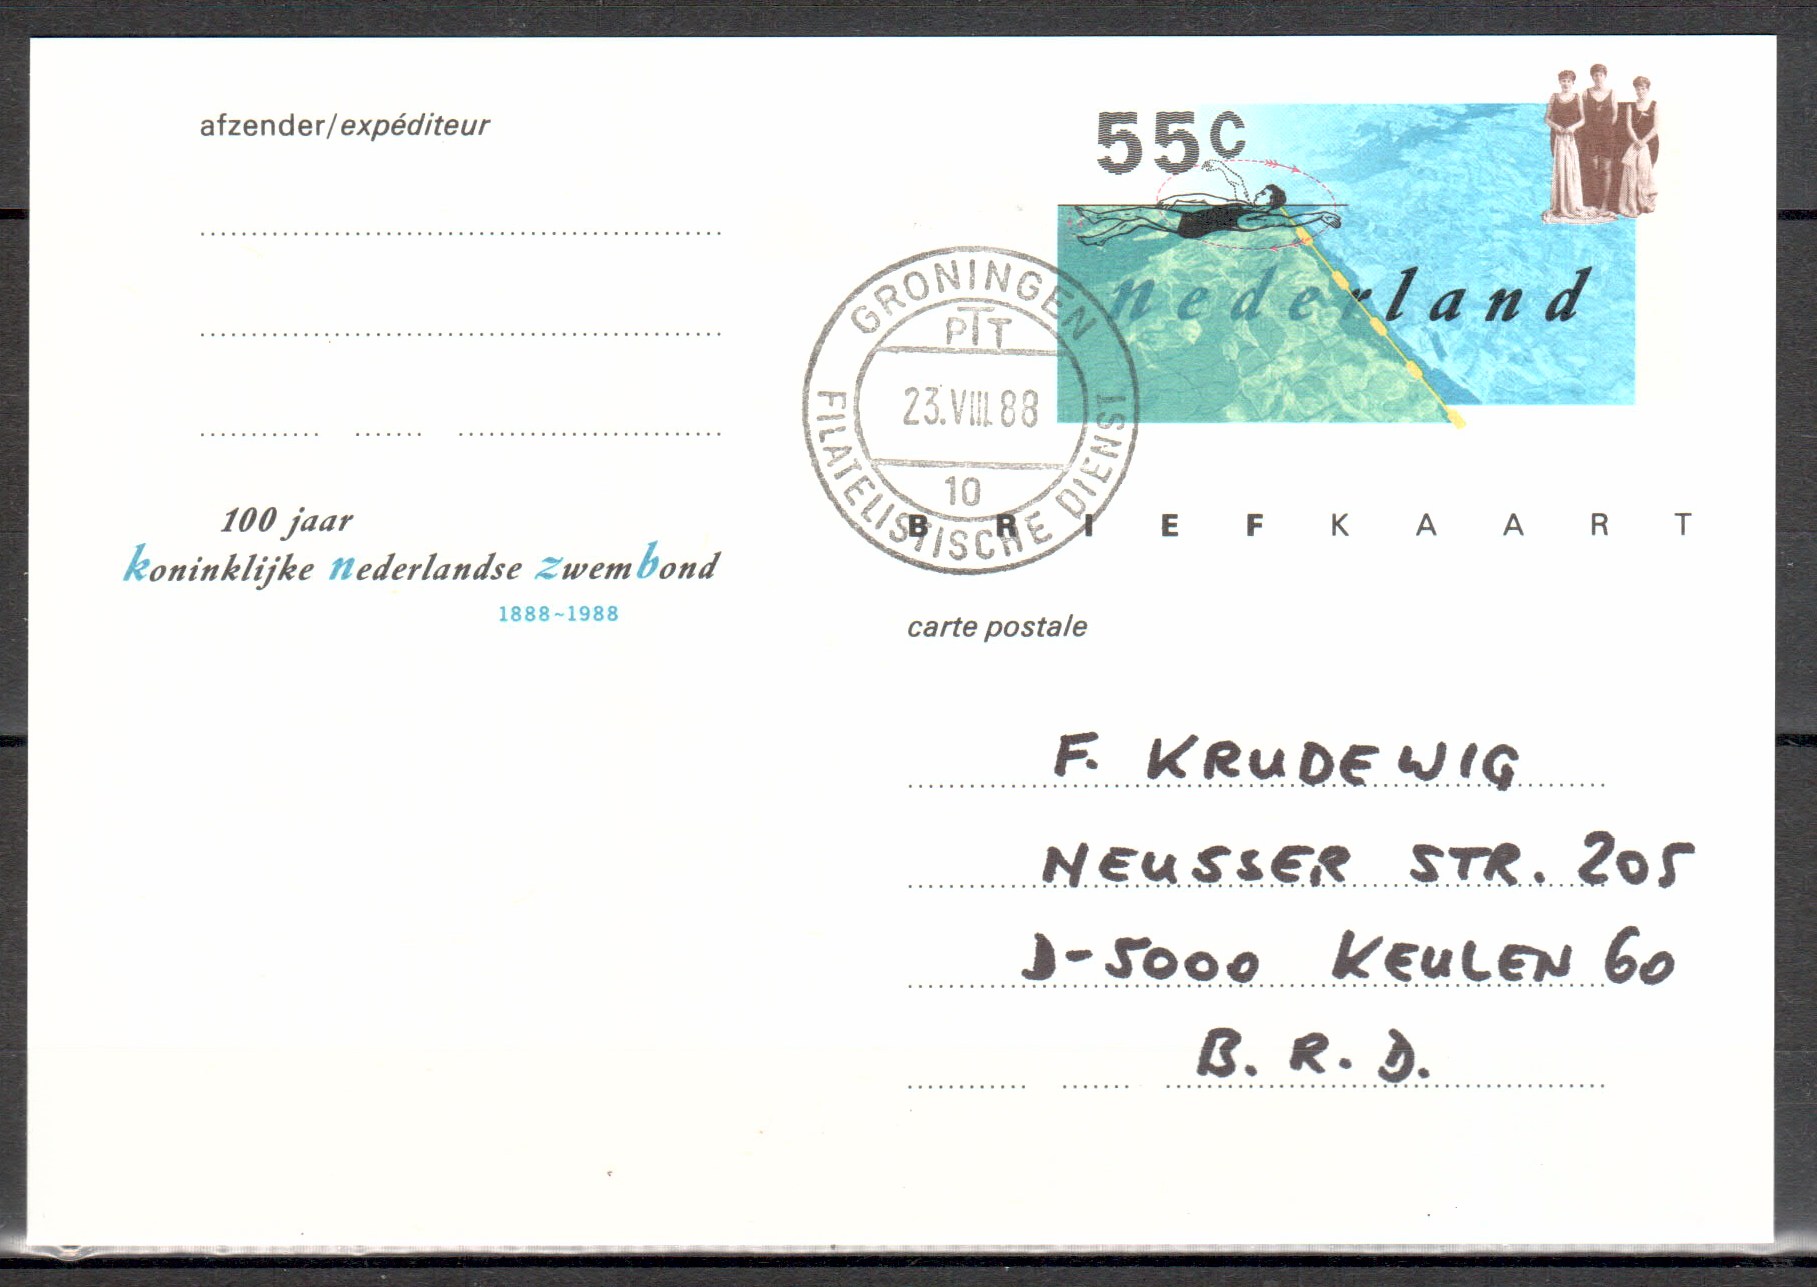 afzender/expéditeur
100 jaar
koninklijke nederlandse zwembond
1888~1988
55c
nederland
GRONINGEN
PTT
23.VIII.88
10
FILATELISTISCHE DIENST
BRIEFKAART
carte postale
F. KRUDEWIG
NEUSSER STR. 205
D-5000 KEULEN 60
B. R. D.